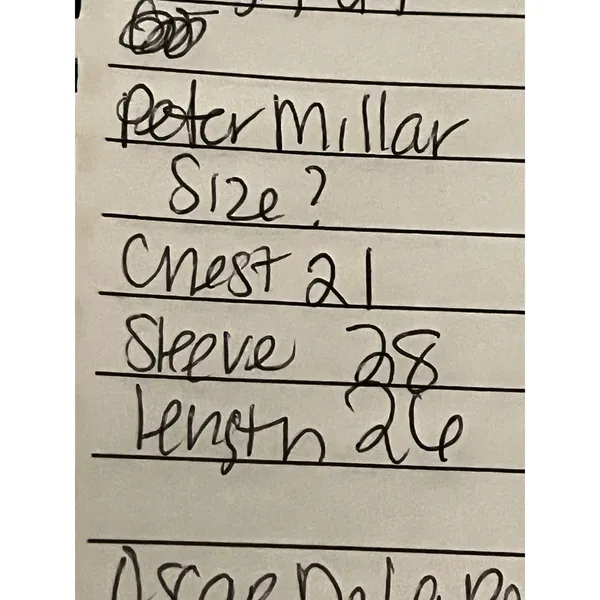 Peter Millar
Size ?
Chest 21
Sleeve 28
length 26
Oscar De La